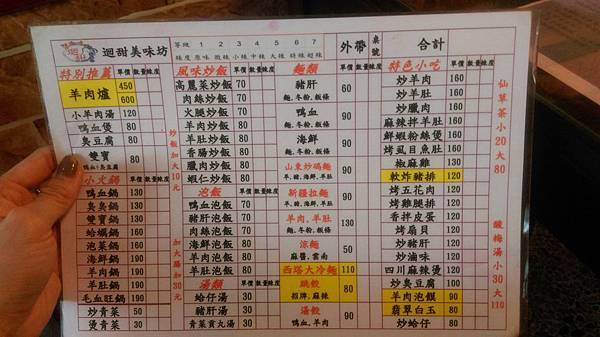 迴甜美味坊
等級 1 2 3 4 5 6 7
辣度 原味 微辣 小辣 中辣 大辣 特辣 超辣
外帶 桌號 合計
特別推薦 單價 數量 辣度
羊肉爐 450
600
小羊肉湯 120
鴨血煲 80
臭豆腐 80
雙寶 80
鴨血+臭豆腐
小火鍋 單價 數量 辣度
鴨血鍋 130
臭臭鍋 130
雙寶鍋 130
蛤蠣鍋 130
泡菜鍋 130
海鮮鍋 190
羊肉鍋 190
羊肚鍋 190
毛血旺鍋 190
炒青菜 50
燙青菜 30
炒飯加大10元
加大腸加30元
風味炒飯 單價 數量 辣度
高麗菜炒飯 70
肉絲炒飯 70
火腿炒飯 70
羊肉炒飯
羊肚炒飯
香腸炒飯
臘肉炒飯
蝦仁炒飯
泡飯 單價 數量 辣度
鴨血泡飯
豬肝泡飯
海鮮泡飯
羊肉泡飯
羊肚泡飯
湯類 單價 數量 辣度
蛤仔湯 30
豬肝湯 30
青菜貢丸湯 30
麵類 單價 數量 辣度
豬肝 60
麵、冬粉、板條
鴨血
麵、冬粉、板條
海鮮 90
麵、冬粉、板條
山東炒碼麵 130
羊、豬、海鮮、羊肚
新疆拉麵 130
羊、豬、海鮮、羊肚
羊肉、羊肚 90
麵、冬粉、板條
涼麵 50
麻醬、雲南
西塔大冷麵 110
跳餃 80
招牌、麻辣
湯餃 90
鴨血、羊肉
特色小吃 單價 數量 辣度
炒羊肉 160
炒羊肚 160
炒臘肉 160
麻辣拌羊肚 160
鮮蝦粉絲煲 160
烤虱目魚肚 160
椒麻雞 130
軟炸豬排 120
烤五花肉 120
烤雞腿排 120
香拌皮蛋 120
烤扇貝 120
炒豬肝 120
炒滷味 120
四川麻辣煲 120
炒臭豆腐 100
羊肉泡饃 90
翡翠白玉 80
炒蛤仔 80
仙草茶小20大80
酸梅湯小30大110